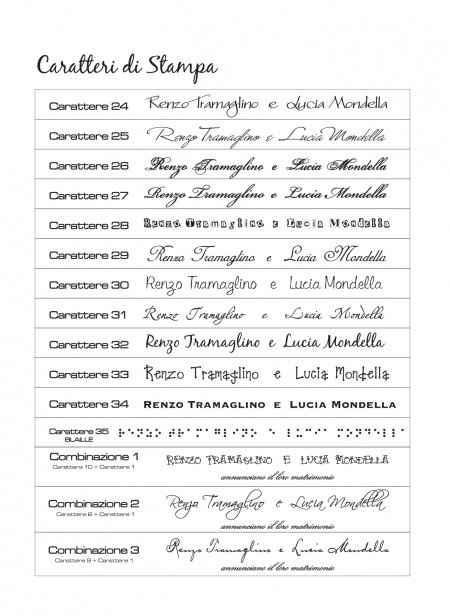 Caratteri di Stampa
Carattere 24 Renzo Tramaglino e Lucia Mondella
Carattere 25 Renzo Tramaglino e Lucia Mondella
Carattere 26 Renzo Tramaglino e Lucia Mondella
Carattere 27 Renzo Tramaglino e Lucia Mondella
Carattere 28 Renzo Tramaglino e Lucia Mondella
Carattere 29 Renzo Tramaglino e Lucia Mondella
Carattere 30 Renzo Tramaglino e Lucia Mondella
Carattere 31 Renzo Tramaglino e Lucia Mondella
Carattere 32 Renzo Tramaglino e Lucia Mondella
Carattere 33 Renzo Tramaglino e Lucia Mondella
Carattere 34 RENZO TRAMAGLINO E LUCIA MONDELLA
Carattere 35 ⠗⠑⠝⠵⠕ ⠞⠗⠁⠍⠁⠛⠇⠊⠝⠕ ⠑ ⠇⠥⠉⠊⠁ ⠍⠕⠝⠙⠑⠇⠇⠁
BLAILLE
Combinazione 1 RENZO TRAMAGLINO E LUCIA MONDELLA
Carattere 10 + Carattere 1
annunciano il loro matrimonio
Combinazione 2 Renzo Tramaglino e Lucia Mondella
Carattere 6 + Carattere 1
annunciano il loro matrimonio
Combinazione 3 Renzo Tramaglino e Lucia Mondella
Carattere 9 + Carattere 1
annunciano il loro matrimonio